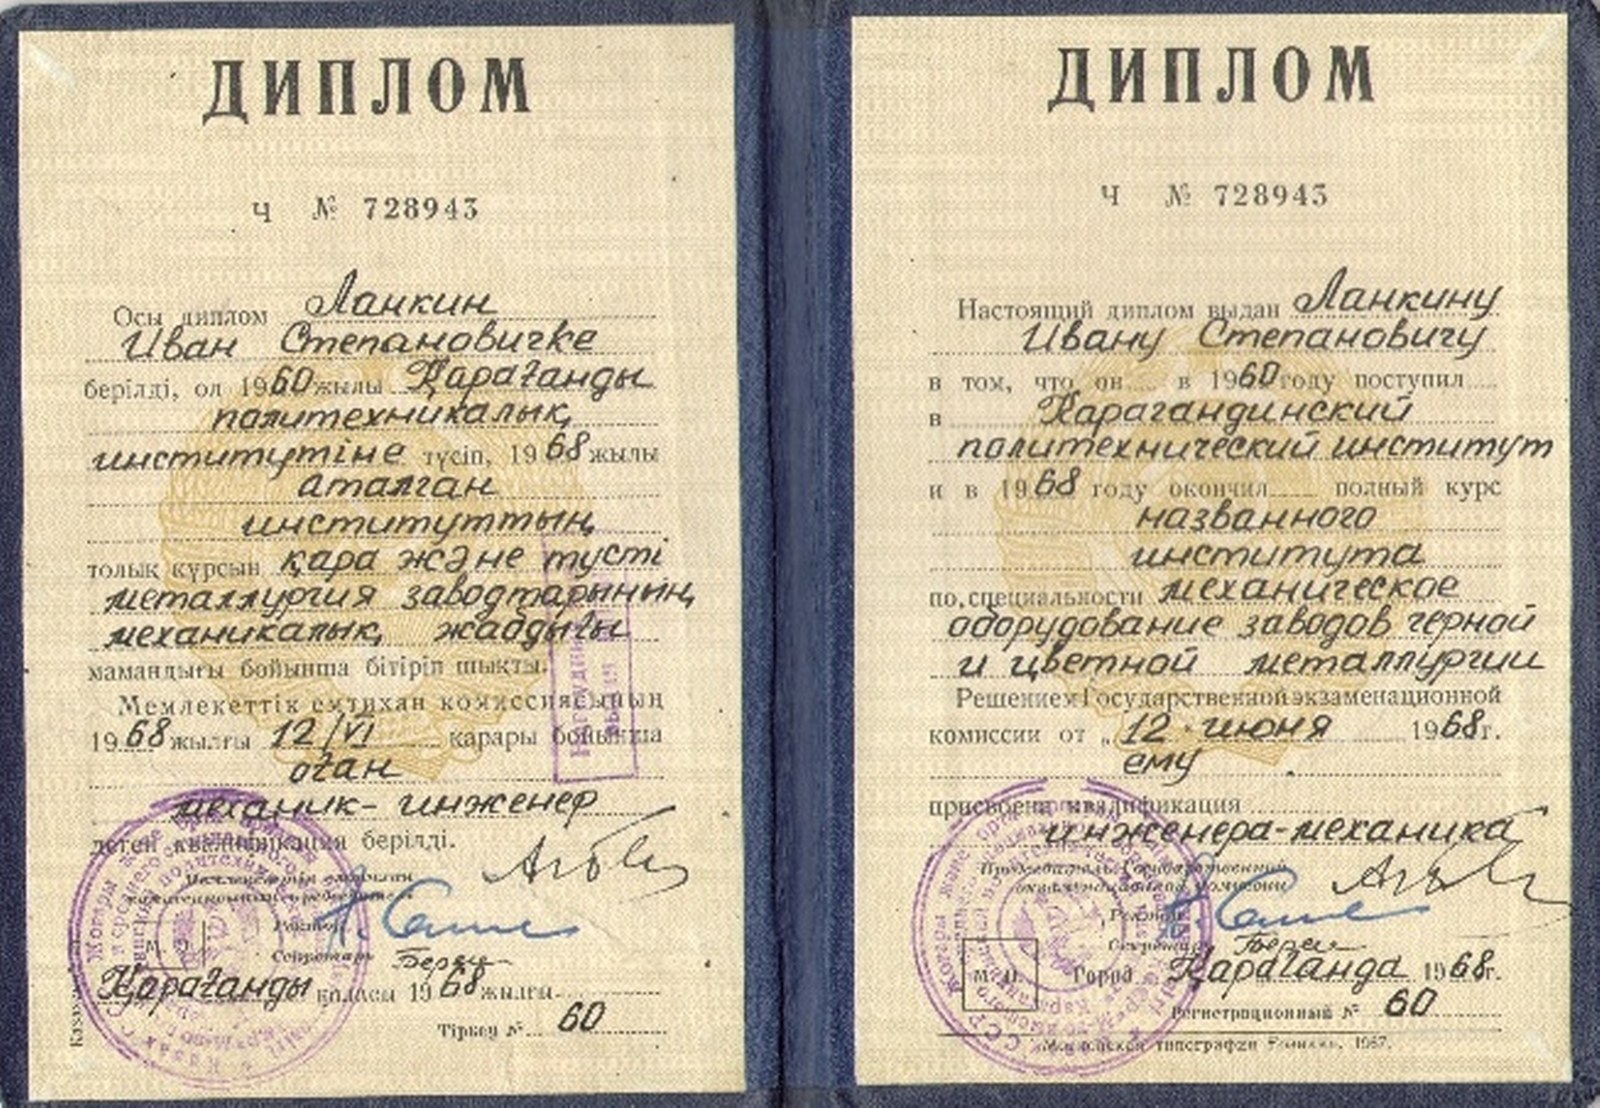 ДИПЛОМ
Ч № 728943
Осы диплом Ланкин
Иван Степановичке
берілді, ол 1960 жылы Қарағанды
политехникалық
институтіне түсіп, 1968 жылы
аталған
институттың
толық курсын қара және түсті
металлургия заводтарының
механикалық жабдығы
мамандығы бойынша бітіріп шықты.
Мемлекеттік емтихан комиссиясының
1968 жылғы 12/VI қарары бойынша
оған
механик-инженер
деген квалификация берілді.
Ректор
Секретарь
М. О.
Қарағанды қаласы 1968 жылғы
Тіркеу № 60
ДИПЛОМ
Ч № 728943
Настоящий диплом выдан Ланкину
Ивану Степановичу
в том, что он в 1960 году поступил
в Карагандинский
политехнический институт
и в 1968 году окончил полный курс
названного
института
по специальности механическое
оборудование заводов черной
и цветной металлургии
Решением Государственной экзаменационной
комиссии от „12" июня 1968 г.
ему
присвоена квалификация
инженера-механика
Председатель Государственной
экзаменационной комиссии
Ректор
Секретарь
М. П.
Город Қарағанда 1968 г.
Регистрационный № 60
Московская типография Гознака. 1967.